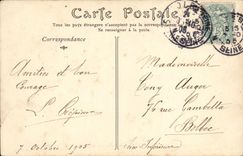 Carte Postale
Tous les pays étrangers n'acceptent pas la correspondance
Se renseigner à la poste
Correspondance
Mademoiselle
Amitiés et bon
Tony Auger
courage
76 rue Gambetta
L. Crépieux
Bolbec
7 octobre 1905
Seine Inférieure
SEINE